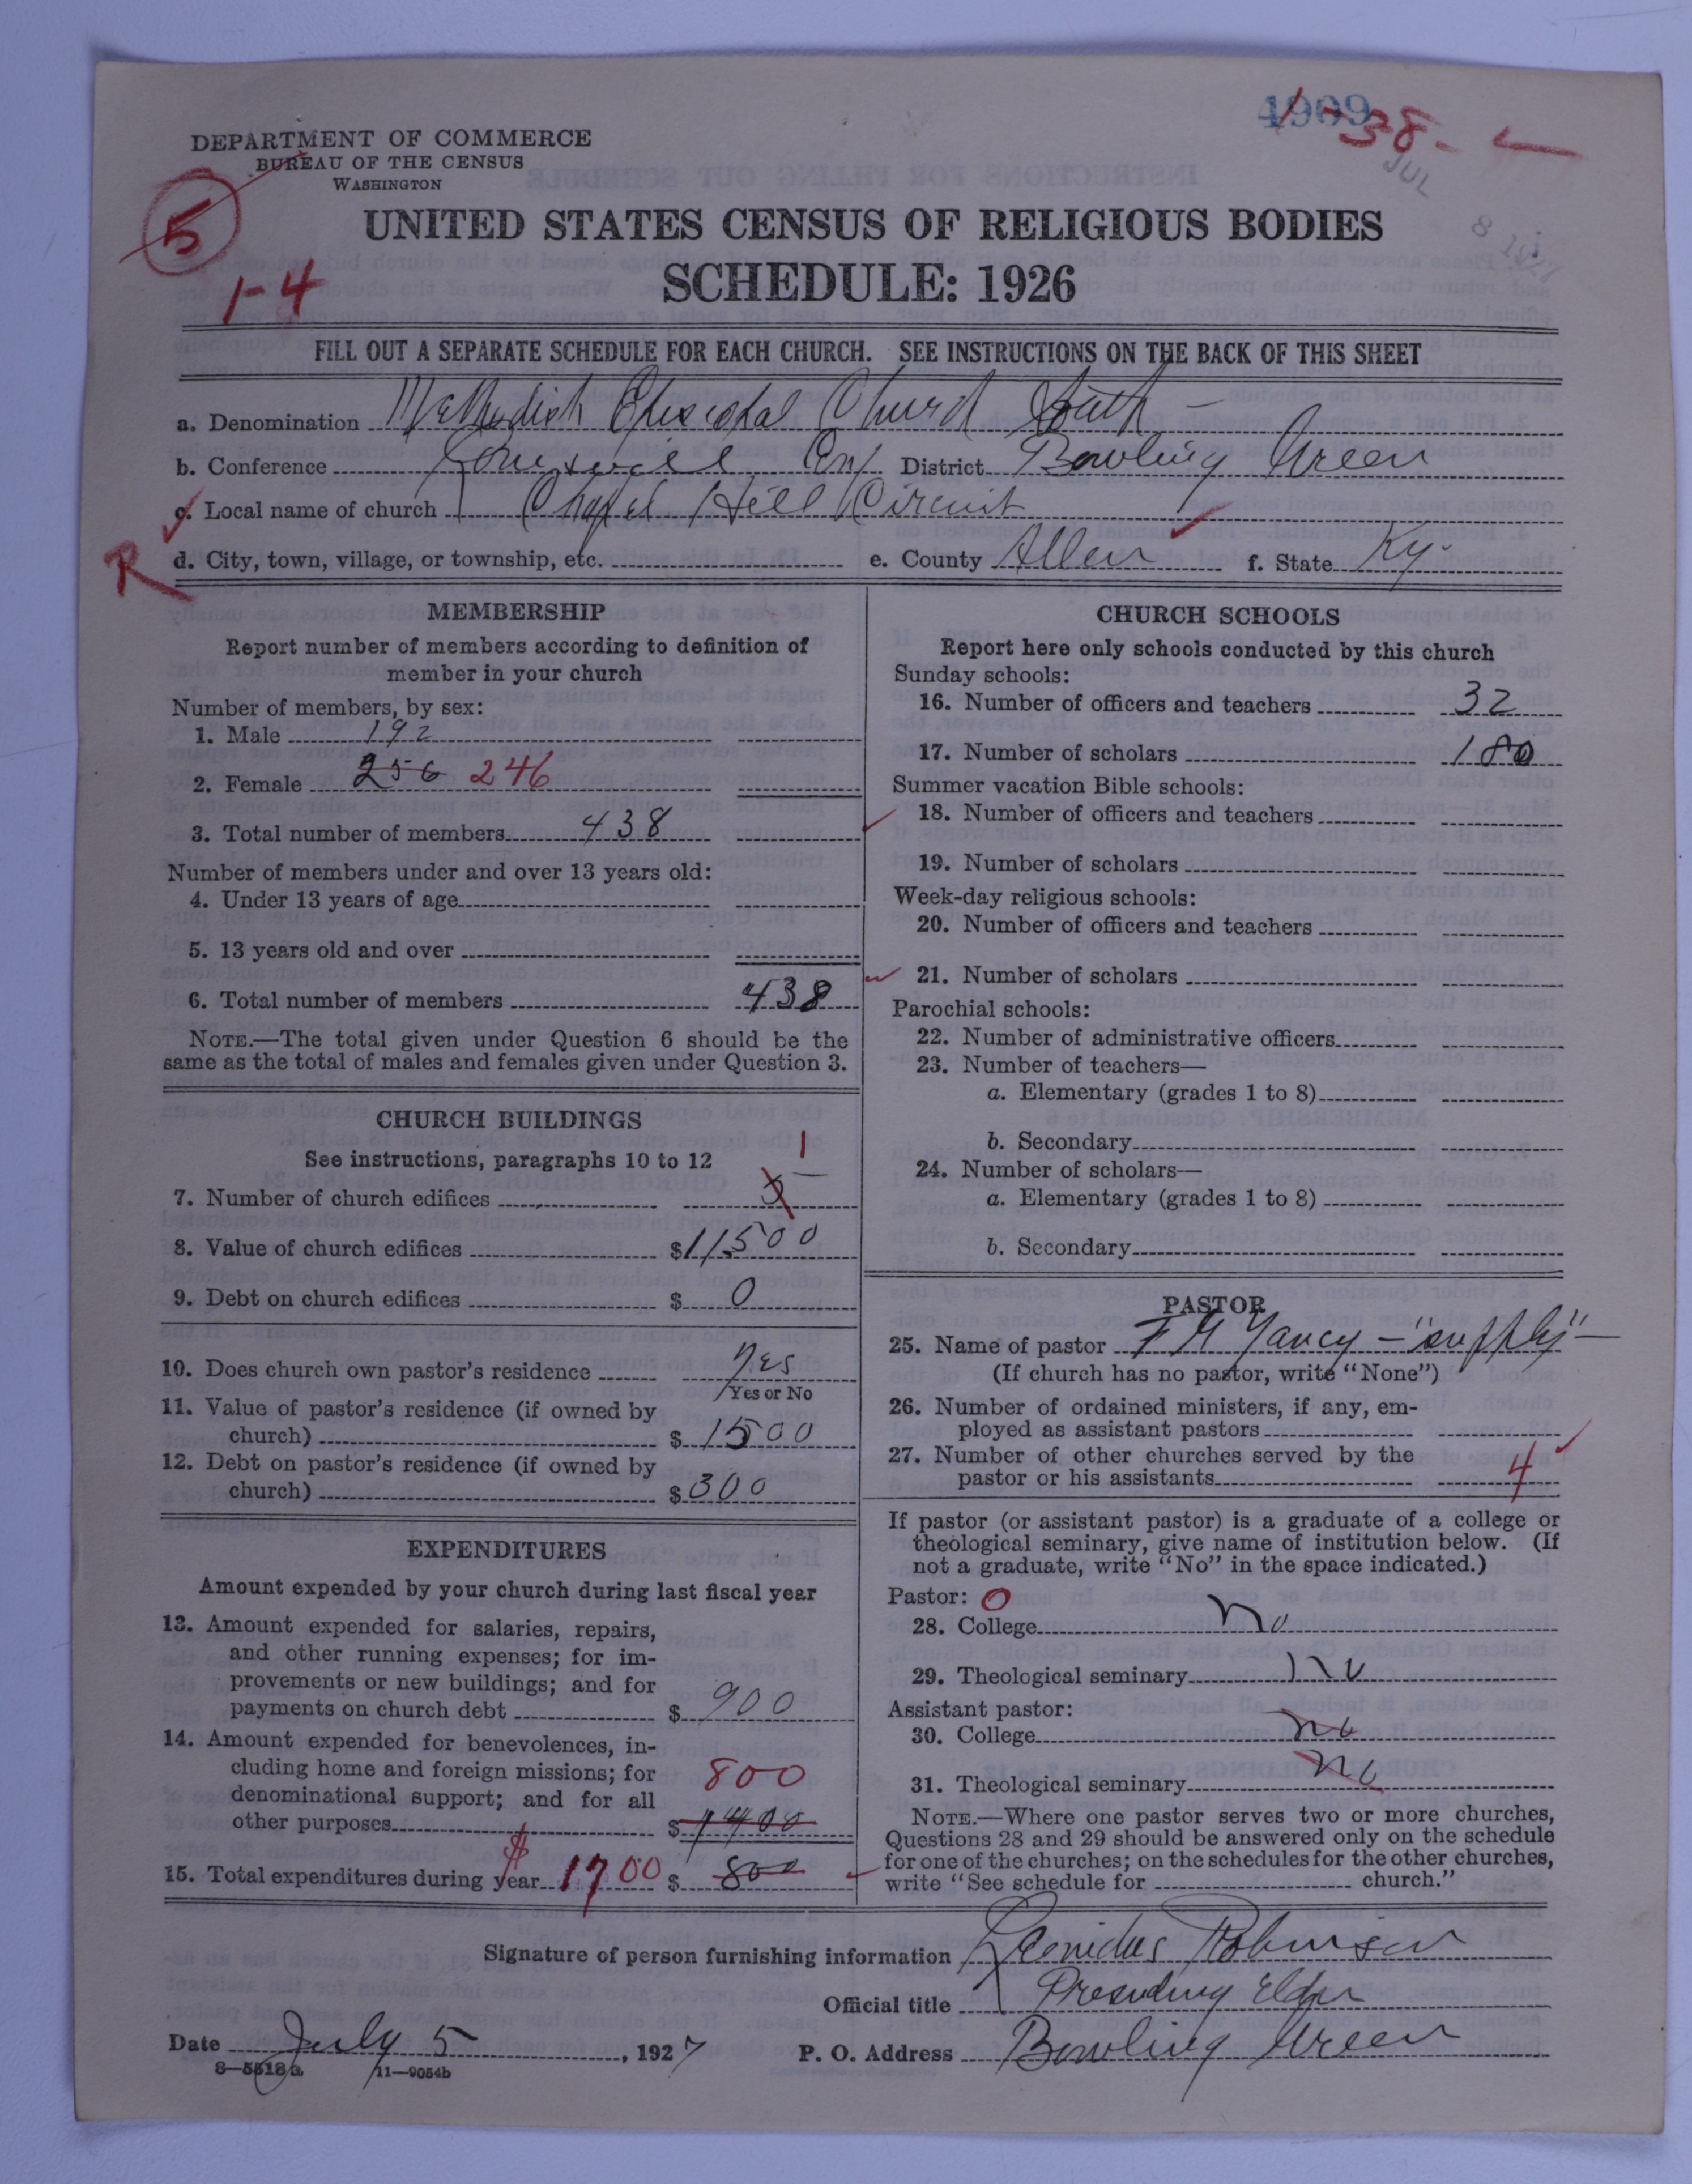 4909
1-38-
JUL 8 1927
DEPARTMENT OF COMMERCE
BUREAU OF THE CENSUS
WASHINGTON
5
1-4
UNITED STATES CENSUS OF RELIGIOUS BODIES
SCHEDULE: 1926
FILL OUT A SEPARATE SCHEDULE FOR EACH CHURCH. SEE INSTRUCTIONS ON THE BACK OF THIS SHEET
a. Denomination Methodist Episcopal Church South -
b. Conference Louisville Conf District Bowling Green
c. Local name of church Chapel Hill Circuit
R d. City, town, village, or township, etc. e. County Allen f. State Ky.
MEMBERSHIP
Report number of members according to definition of
member in your church
Number of members, by sex:
1. Male 192
2. Female 256 246
3. Total number of members 438
Number of members under and over 13 years old:
4. Under 13 years of age
5. 13 years old and over
6. Total number of members 438
NOTE.—The total given under Question 6 should be the
same as the total of males and females given under Question 3.
CHURCH BUILDINGS
See instructions, paragraphs 10 to 12
7. Number of church edifices 5 1
8. Value of church edifices $11500
9. Debt on church edifices $ 0
10. Does church own pastor's residence Yes
Yes or No
11. Value of pastor's residence (if owned by
church) $ 1500
12. Debt on pastor's residence (if owned by
church) $ 300
EXPENDITURES
Amount expended by your church during last fiscal year
13. Amount expended for salaries, repairs,
and other running expenses; for im-
provements or new buildings; and for
payments on church debt $ 900
14. Amount expended for benevolences, in-
cluding home and foreign missions; for 800
denominational support; and for all
other purposes $ 1400
15. Total expenditures during year $1700 $ 800
CHURCH SCHOOLS
Report here only schools conducted by this church
Sunday schools:
16. Number of officers and teachers 32
17. Number of scholars 180
Summer vacation Bible schools:
18. Number of officers and teachers
19. Number of scholars
Week-day religious schools:
20. Number of officers and teachers
21. Number of scholars
Parochial schools:
22. Number of administrative officers
23. Number of teachers—
a. Elementary (grades 1 to 8)
b. Secondary
24. Number of scholars—
a. Elementary (grades 1 to 8)
b. Secondary
PASTOR
25. Name of pastor F M Yancy - "supply" -
(If church has no pastor, write "None")
26. Number of ordained ministers, if any, em-
ployed as assistant pastors
27. Number of other churches served by the
pastor or his assistants 4
If pastor (or assistant pastor) is a graduate of a college or
theological seminary, give name of institution below. (If
not a graduate, write "No" in the space indicated.)
Pastor: 0
28. College no
29. Theological seminary no
Assistant pastor:
30. College no
31. Theological seminary no
NOTE.—Where one pastor serves two or more churches,
Questions 28 and 29 should be answered only on the schedule
for one of the churches; on the schedules for the other churches,
write "See schedule for church."
Signature of person furnishing information Leonidas Robinson
Official title Presiding Elder
Date July 5, 1927 P. O. Address Bowling Green
8—5518a 11—9054b